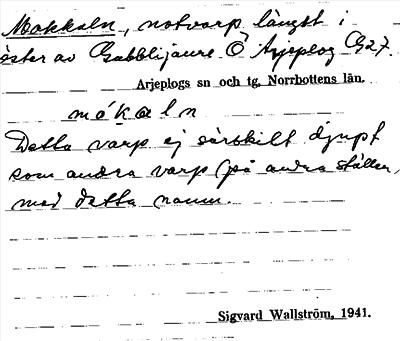 Mokkeln, notvarp längst i
öster av Gabblijaure Ö Arjeplog G27.
Arjeplogs sn och tg, Norrbottens län.
mókaln
Detta varp ej särskilt djupt
som andra varp (på andra ställen,
med detta namn.
Sigvard Wallström, 1941.